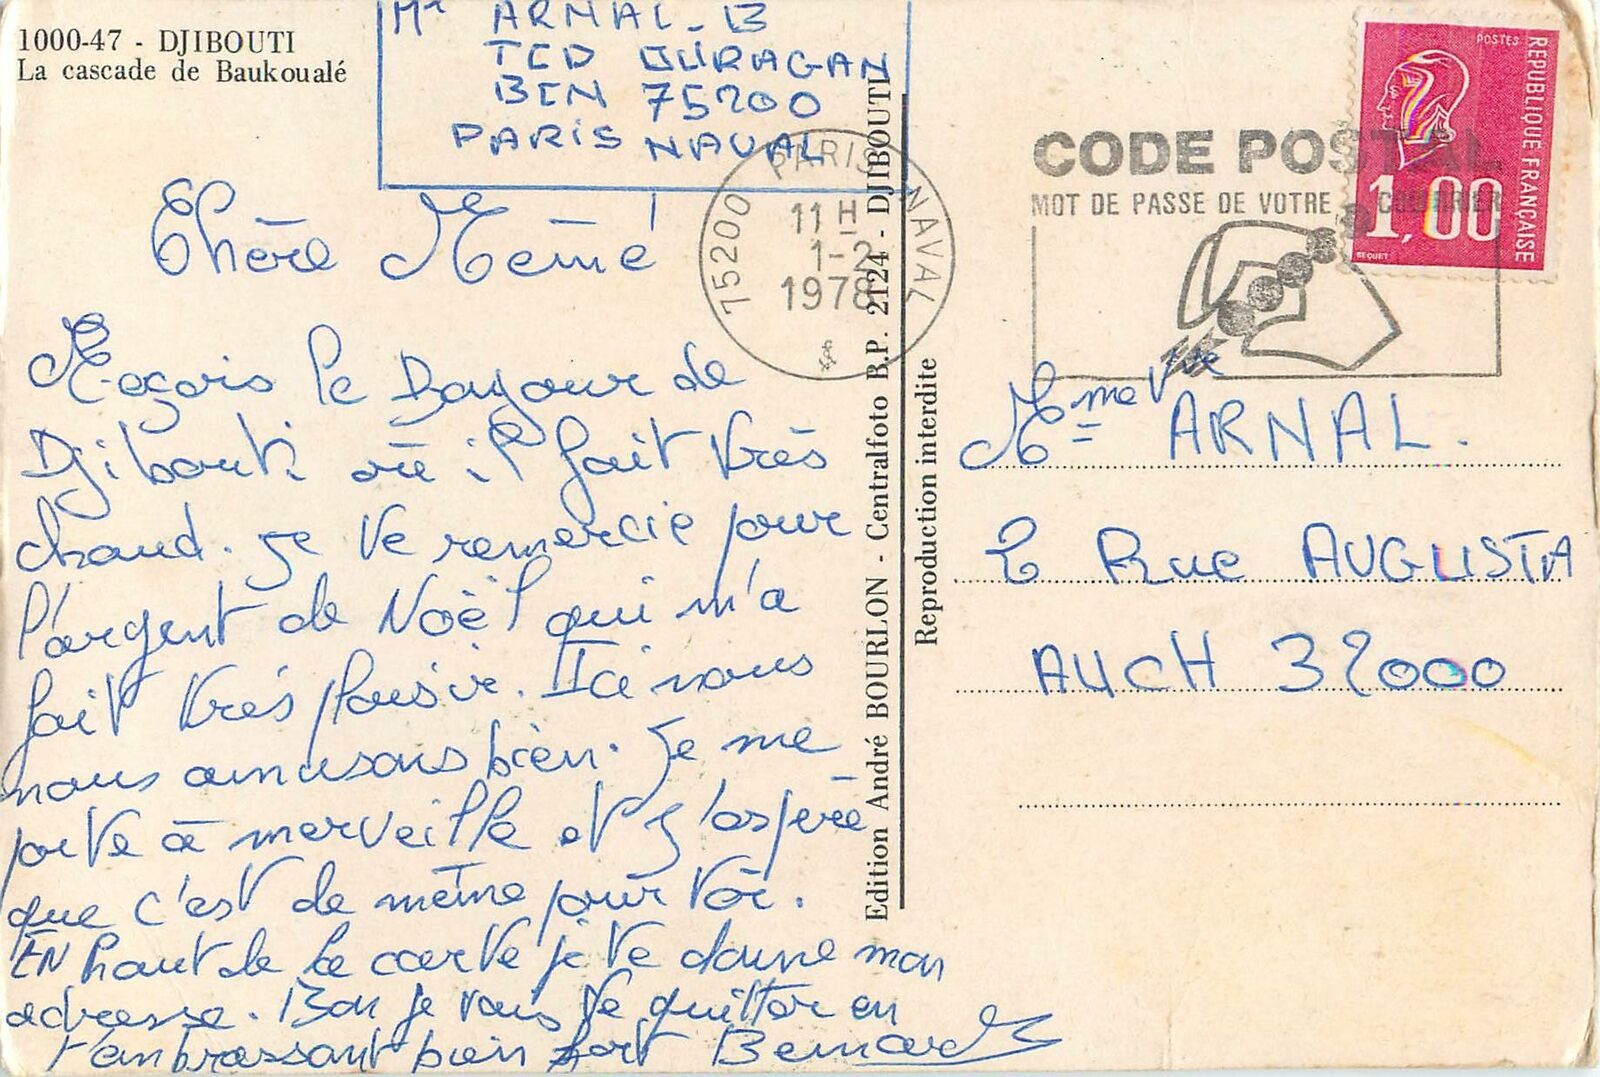 1000-47 - DJIBOUTI
La cascade de Baukoualé
Mr ARNAL-B
TCD OURAGAN
BCN 75200
PARIS NAVAL
75200 PARIS NAVAL
11 H
1-2
1978
CODE POSTAL
MOT DE PASSE DE VOTRE COURRIER
POSTES
REPUBLIQUE FRANÇAISE
1,00
BEQUET
Chère Mémé
Reçois le Bonjour de
Djibouti où il fait très
chaud. Je te remercie pour
l'argent de Noël qui m'a
fait très plaisir. Ici nous
nous amusons bien. Je me
porte à merveille et j'espère
que c'est de même pour toi.
EN haut de la carte je te donne mon
adresse. Bon je vais te quitter en
t'embrassant bien fort Bernard
Edition André BOURLON - Centralfoto B.P. 2124 - DJIBOUTI
Reproduction interdite
Mme Vve ARNAL.
2 Rue AUGUSTA
AUCH 32000